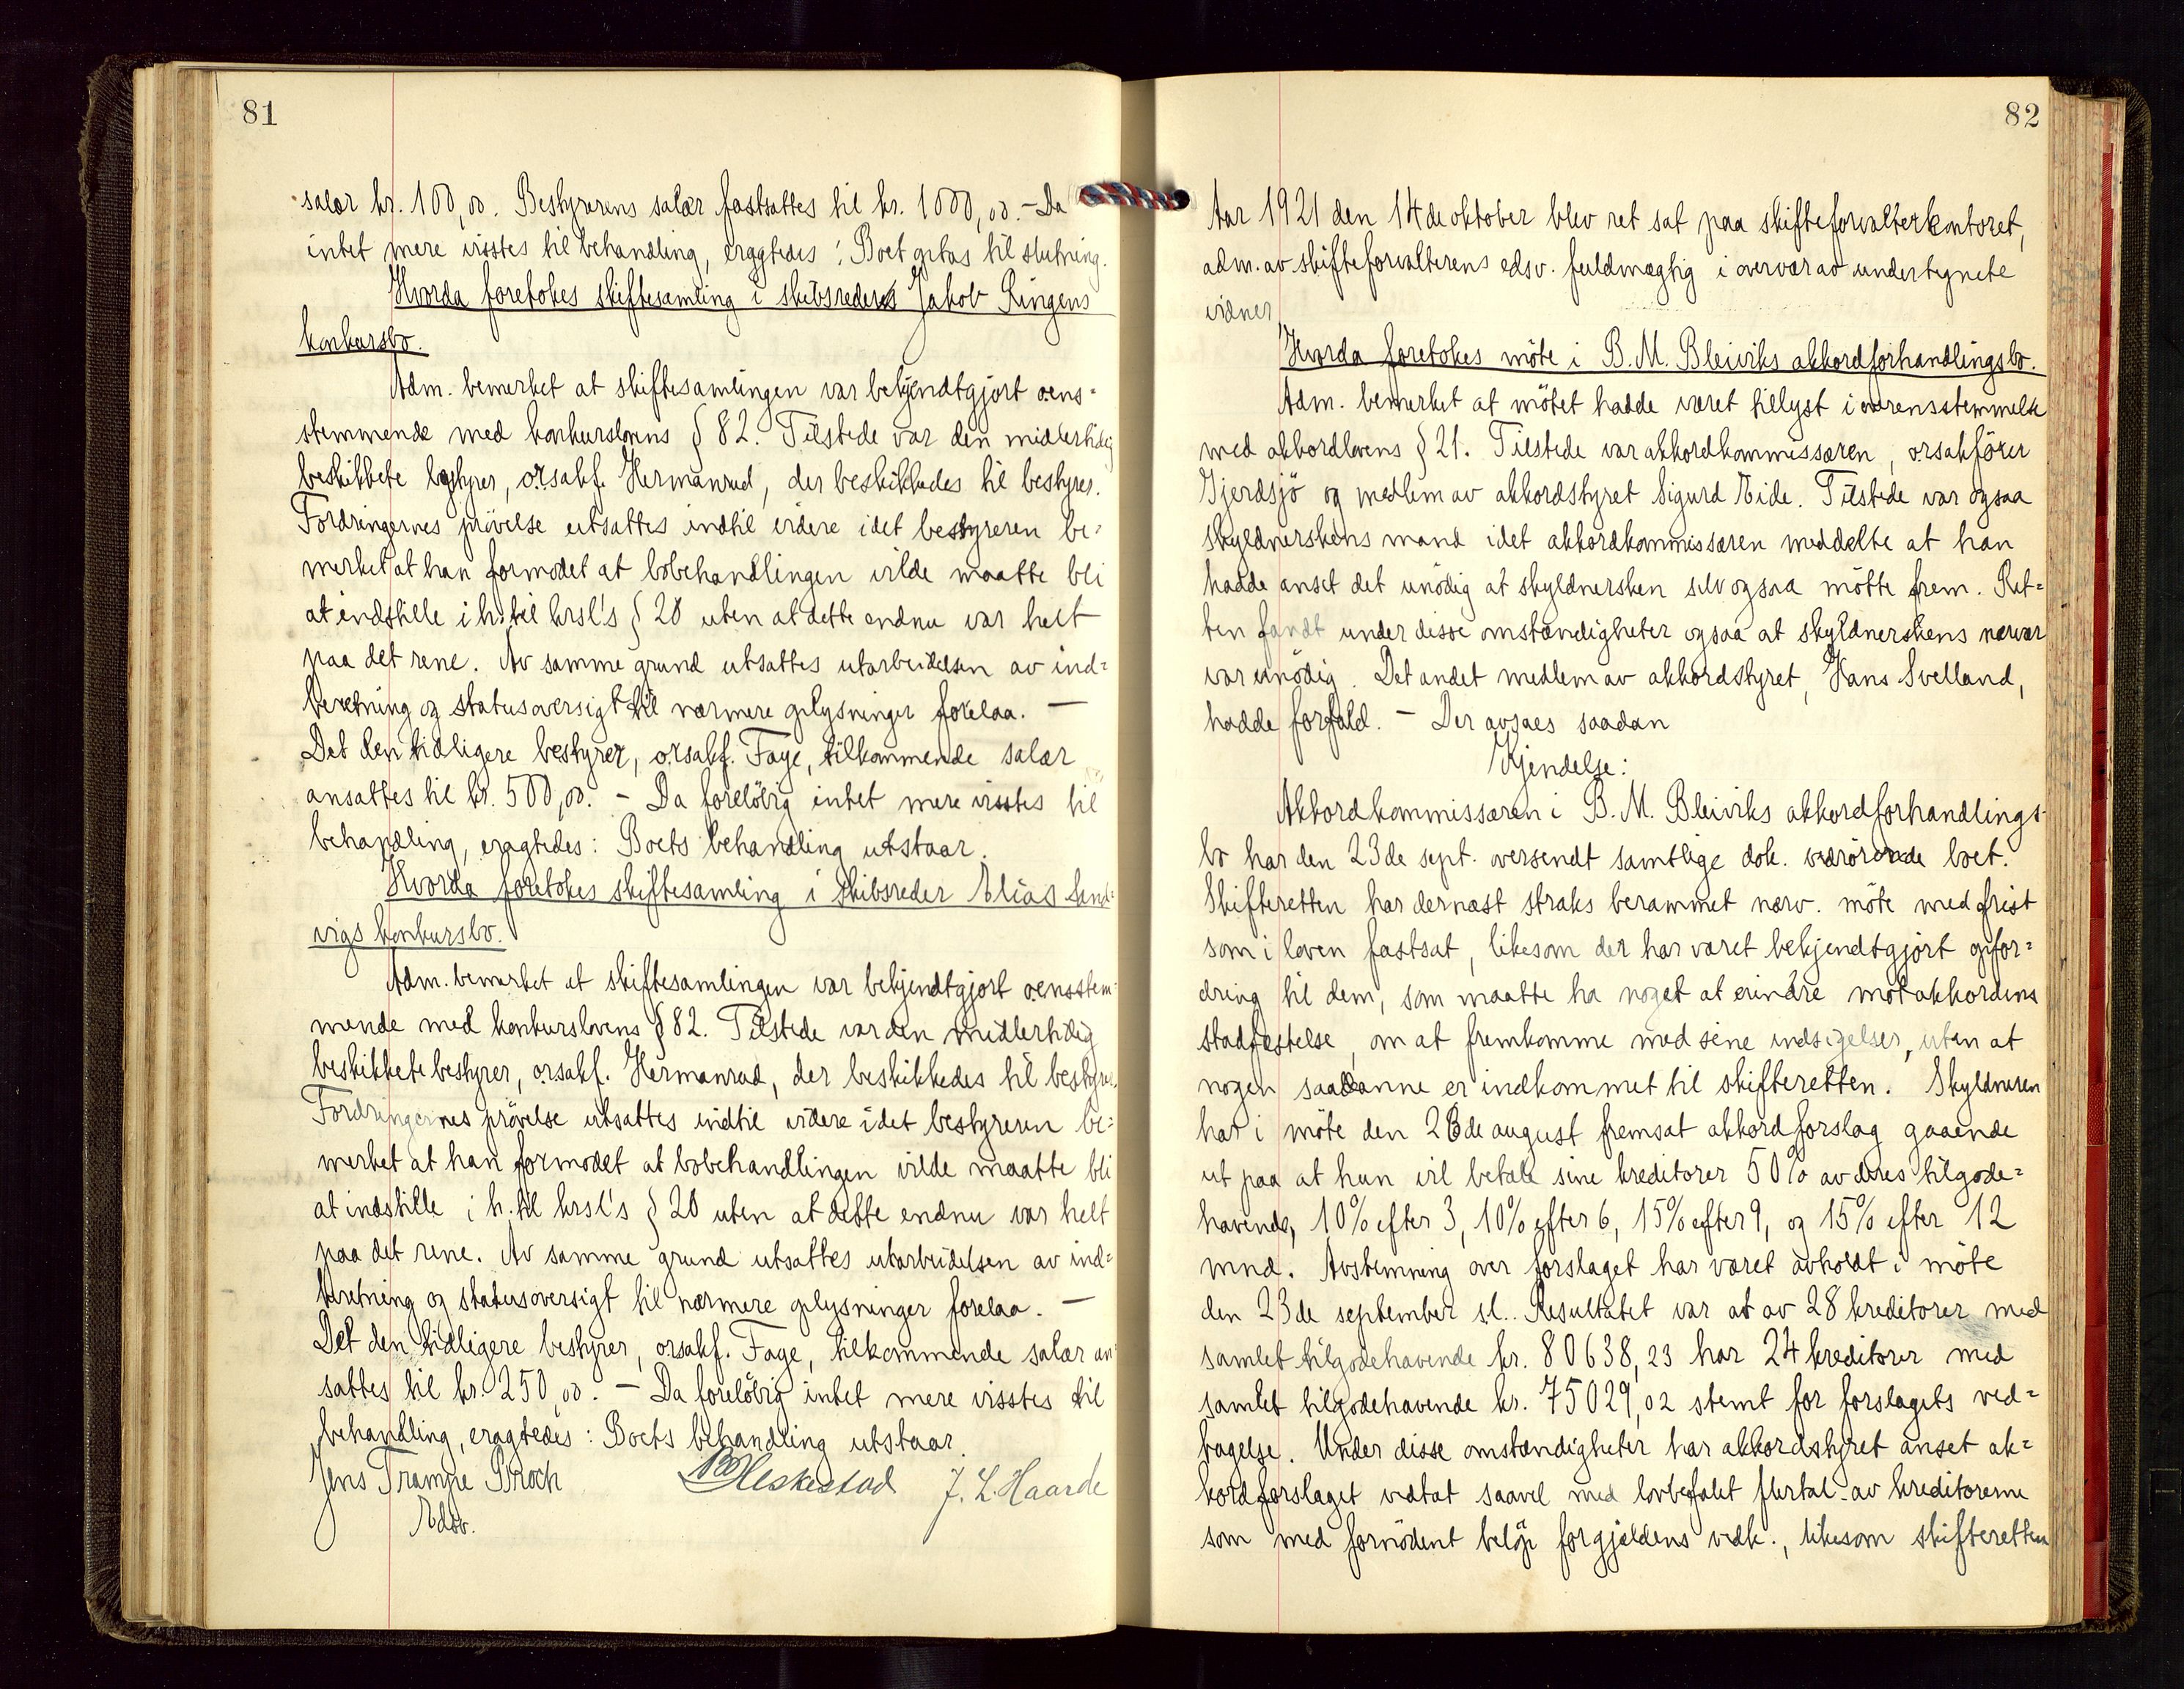 81
salær kr. 100,00. Bestyrerens salær fastsattes til kr. 1000,00. - Da
intet mere visstes til behandling, eragtedes: Boet optas til slutning.
Hvorda foretokes skiftesamling i skibsreders Jakob Ringens
konkursbo.
Adm. bemerket at skiftesamlingen var bekjendtgjort o.ens=
stemmende med konkurslovens § 82. Tilstede var den midlertidig
beskikkete bestyrer, o.r.sakf. Hermanrud, der beskikkedes til bestyrer.
Fordringernes prövelse utsattes indtil videre idet bestyreren be=
merket at han formodet at bobehandlingen vilde maatte bli
at indstille i h. til krsl's § 20 uten at dette endnu var helt
paa det rene. Av samme grund utsattes utarbeidelsen av ind=
beretning og statusoversigt til nærmere oplysninger forelaa. —
Det den tidligere bestyrer, o.r.sakf. Faye, tilkommende salær
ansattes til kr. 500,00. - Da forelöbig intet mere visstes til
behandling, eragtedes: Boets behandling utstaar.
Hvorda foretokes skiftesamling i skibsreder Elias Sand=
vigs konkursbo.
Adm. bemerket at skiftesamlingen var bekjendtgjort o.ensstem=
mende med konkurslovens § 82. Tilstede var den midlertidig
beskikkete bestyrer, o.r.sakf. Hermanrud, der beskikkedes til bestyrer.
Fordringernes prövelse utsattes indtil videre idet bestyreren be=
merket at han formodet at bobehandlingen vilde maatte bli
at indstille i h. til krsl's § 20 uten at dette endnu var helt
paa det rene. Av samme grund utsattes utarbeidelsen av ind=
beretning og statusoversigt til nærmere oplysninger forelaa. —
Det den tidligere bestyrer, o.r.sakf. Faye, tilkommende salær an=
sattes til kr. 250,00. - Da forelöbig intet mere visstes til
behandling, eragtedes: Boets behandling utstaar.
Jens Trampe Broch Heskestad J. L. Haarde
Edsv.
82
Aar 1921 den 14de oktober blev ret sat paa skifteforvalterkontoret,
adm. av skifteforvalterens edsv. fuldmægtig i overvær av undertegnete
vidner
Hvorda foretokes möte i B. M. Bleiviks akkordforhandlingsbo.
Adm. bemerket at mötet hadde været tillyst i overensstemmelse
med akkordlovens § 21. Tilstede var akkordkommissæren, o.r.sakförer
Gjerdsjö og medlem av akkordstyret Sigurd Eide. Tilstede var ogsaa
skyldnerskens mand idet akkordkommissæren meddelte at han
hadde anset det unödig at skyldnersken selv ogsaa mötte frem. Ret=
ten fandt under disse omstændigheter ogsaa at skyldnerskens nærvær
var unödig. Det andet medlem av akkordstyret, Hans Svelland,
hadde forfald. - Der avsaes saadan
Kjendelse:
Akkordkommissæren i B. M. Bleiviks akkordforhandlings-
bo har den 23de sept. oversendt samtlige dok. vedrörende boet.
Skifteretten har dernæst straks berammet nærv. möte med frist
som i loven fastsat, likesom der har været bekjendtgjort opfor=
dring til dem, som maatte ha noget at erindre mot akkordens
stadfæstelse, om at fremkomme med sine indsigelser, uten at
nogen saadanne er indkommet til skifteretten. Skyldneren
har i möte den 26de august fremsat akkordforslag gaaende
ut paa at hun vil betale sine kreditorer 50% av deres tilgode=
havende, 10% efter 3, 10% efter 6, 15% efter 9, og 15% efter 12
mnd. Avstemning over forslaget har været avholdt i möte
den 23de september s.l.. Resultatet var at av 28 kreditorer med
samlet tilgodehavende kr. 80638,23 har 24 kreditorer med
samlet tilgodehavende kr. 75029,02 stemt for forslagets ved=
tagelse. Under disse omstændigheter har akkordstyret anset ak=
kordforslaget vedtat saavel med lovbefalet flertal av kreditorerne
som med fornödent belöp for gjældens vedk., likesom skifteretten